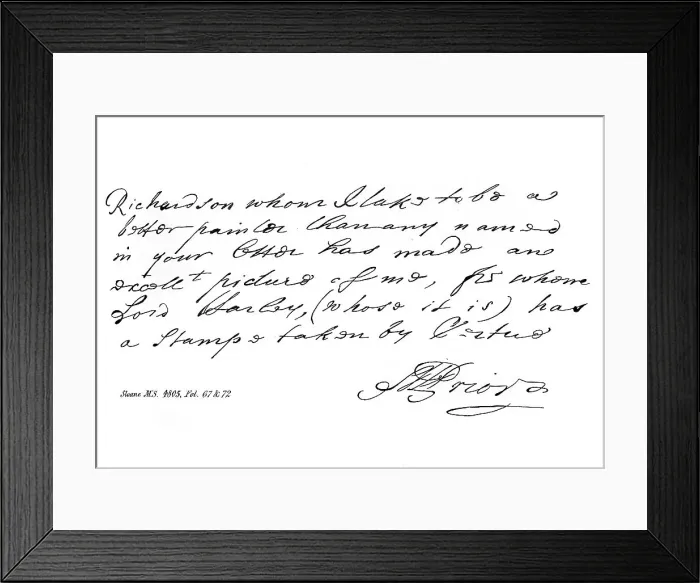 Richardson whom I take to be a
better painter than any named
in your letter has made an
excellt picture of me, frō whome
Lord Harley, (whose it is) has
a Stampe taken by Vertue
MPrior
Sloane M.S. 4805, Fol. 67 & 72